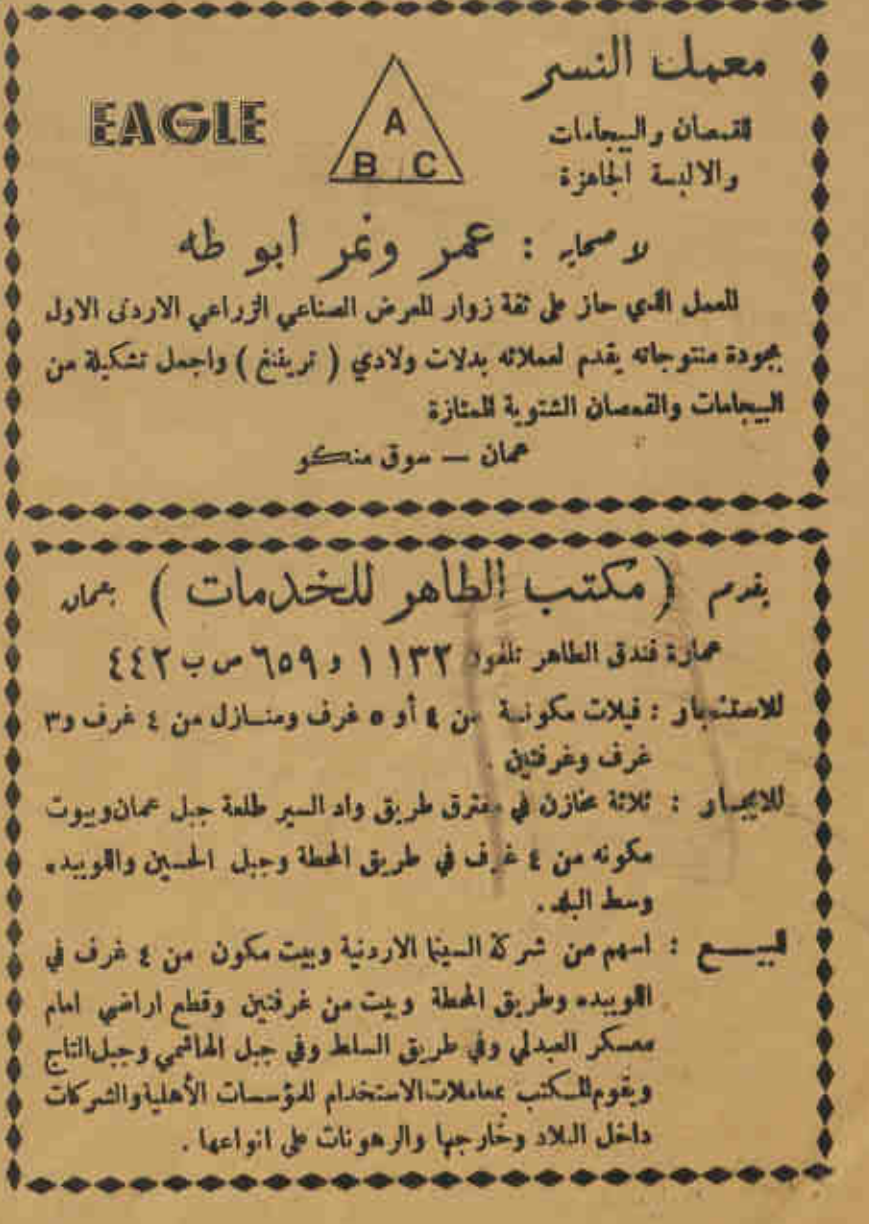 معمل النسر
للقمصان والبيجامات
والالبسة الجاهزة
EAGLE
A
B C
لاصحابه : عمر ونمر ابو طه
المعمل الذي حاز على ثقة زوار المعرض الصناعي الزراعي الاردني الاول
بجودة منتوجاته يقدم لعملائه بدلات ولادي ( تريننغ ) واجمل تشكيلة من
البيجامات والقمصان الشتوية الممتازة
عمان — سوق منكو
يقدم ( مكتب الطاهر للخدمات ) بعمان
عمارة فندق الطاهر تلفون ١١٣٢ و ٦٥٩ ص ب ٤٤٢
للاستئجار : فيلات مكونة من ٤ أو ٥ غرف ومنازل من ٤ غرف و٣
غرف وغرفتين .
للايجار : ثلاثة مخازن في مفترق طريق واد السير طلعة جبل عمان وبيوت
مكونه من ٤ غرف في طريق المحطة وجبل الحسين واللويبده
وسط البلد .
للبيع : اسهم من شركة السينما الاردنية وبيت مكون من ٤ غرف في
اللويبده وطريق المحطة وبيت من غرفتين وقطع اراضي امام
معسكر العبدلي وفي طريق السلط وفي جبل الهاشمي وجبل التاج
ويقوم المكتب بمعاملات الاستخدام للمؤسسات الأهلية والشركات
داخل البلاد وخارجها والرهونات على انواعها .